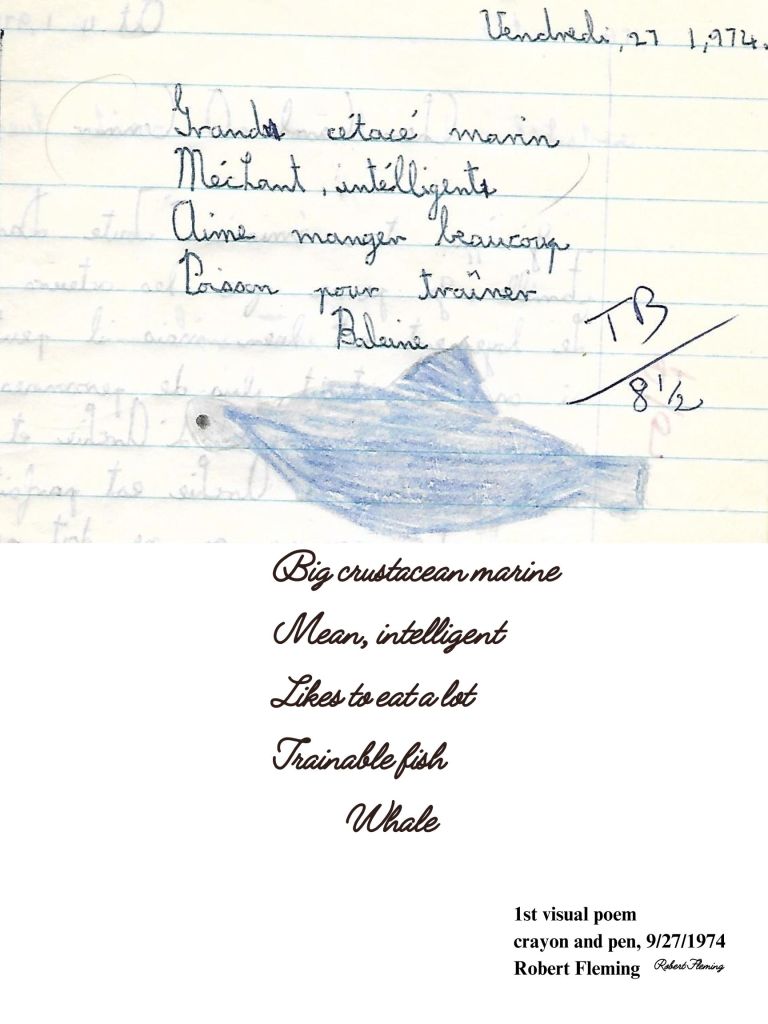 Vendredi, 27 1,974.
Grand cétacé marin
Méchant, intélligent
Aime manger beaucoup
Poisson pour traîner
Baleine
TB
8 1/2
Big crustacean marine
Mean, intelligent
Likes to eat a lot
Trainable fish
Whale
1st visual poem
crayon and pen, 9/27/1974
Robert Fleming Robert Fleming